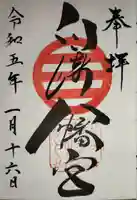 奉拝
白濱八幡宮
令和五年
一月十六日